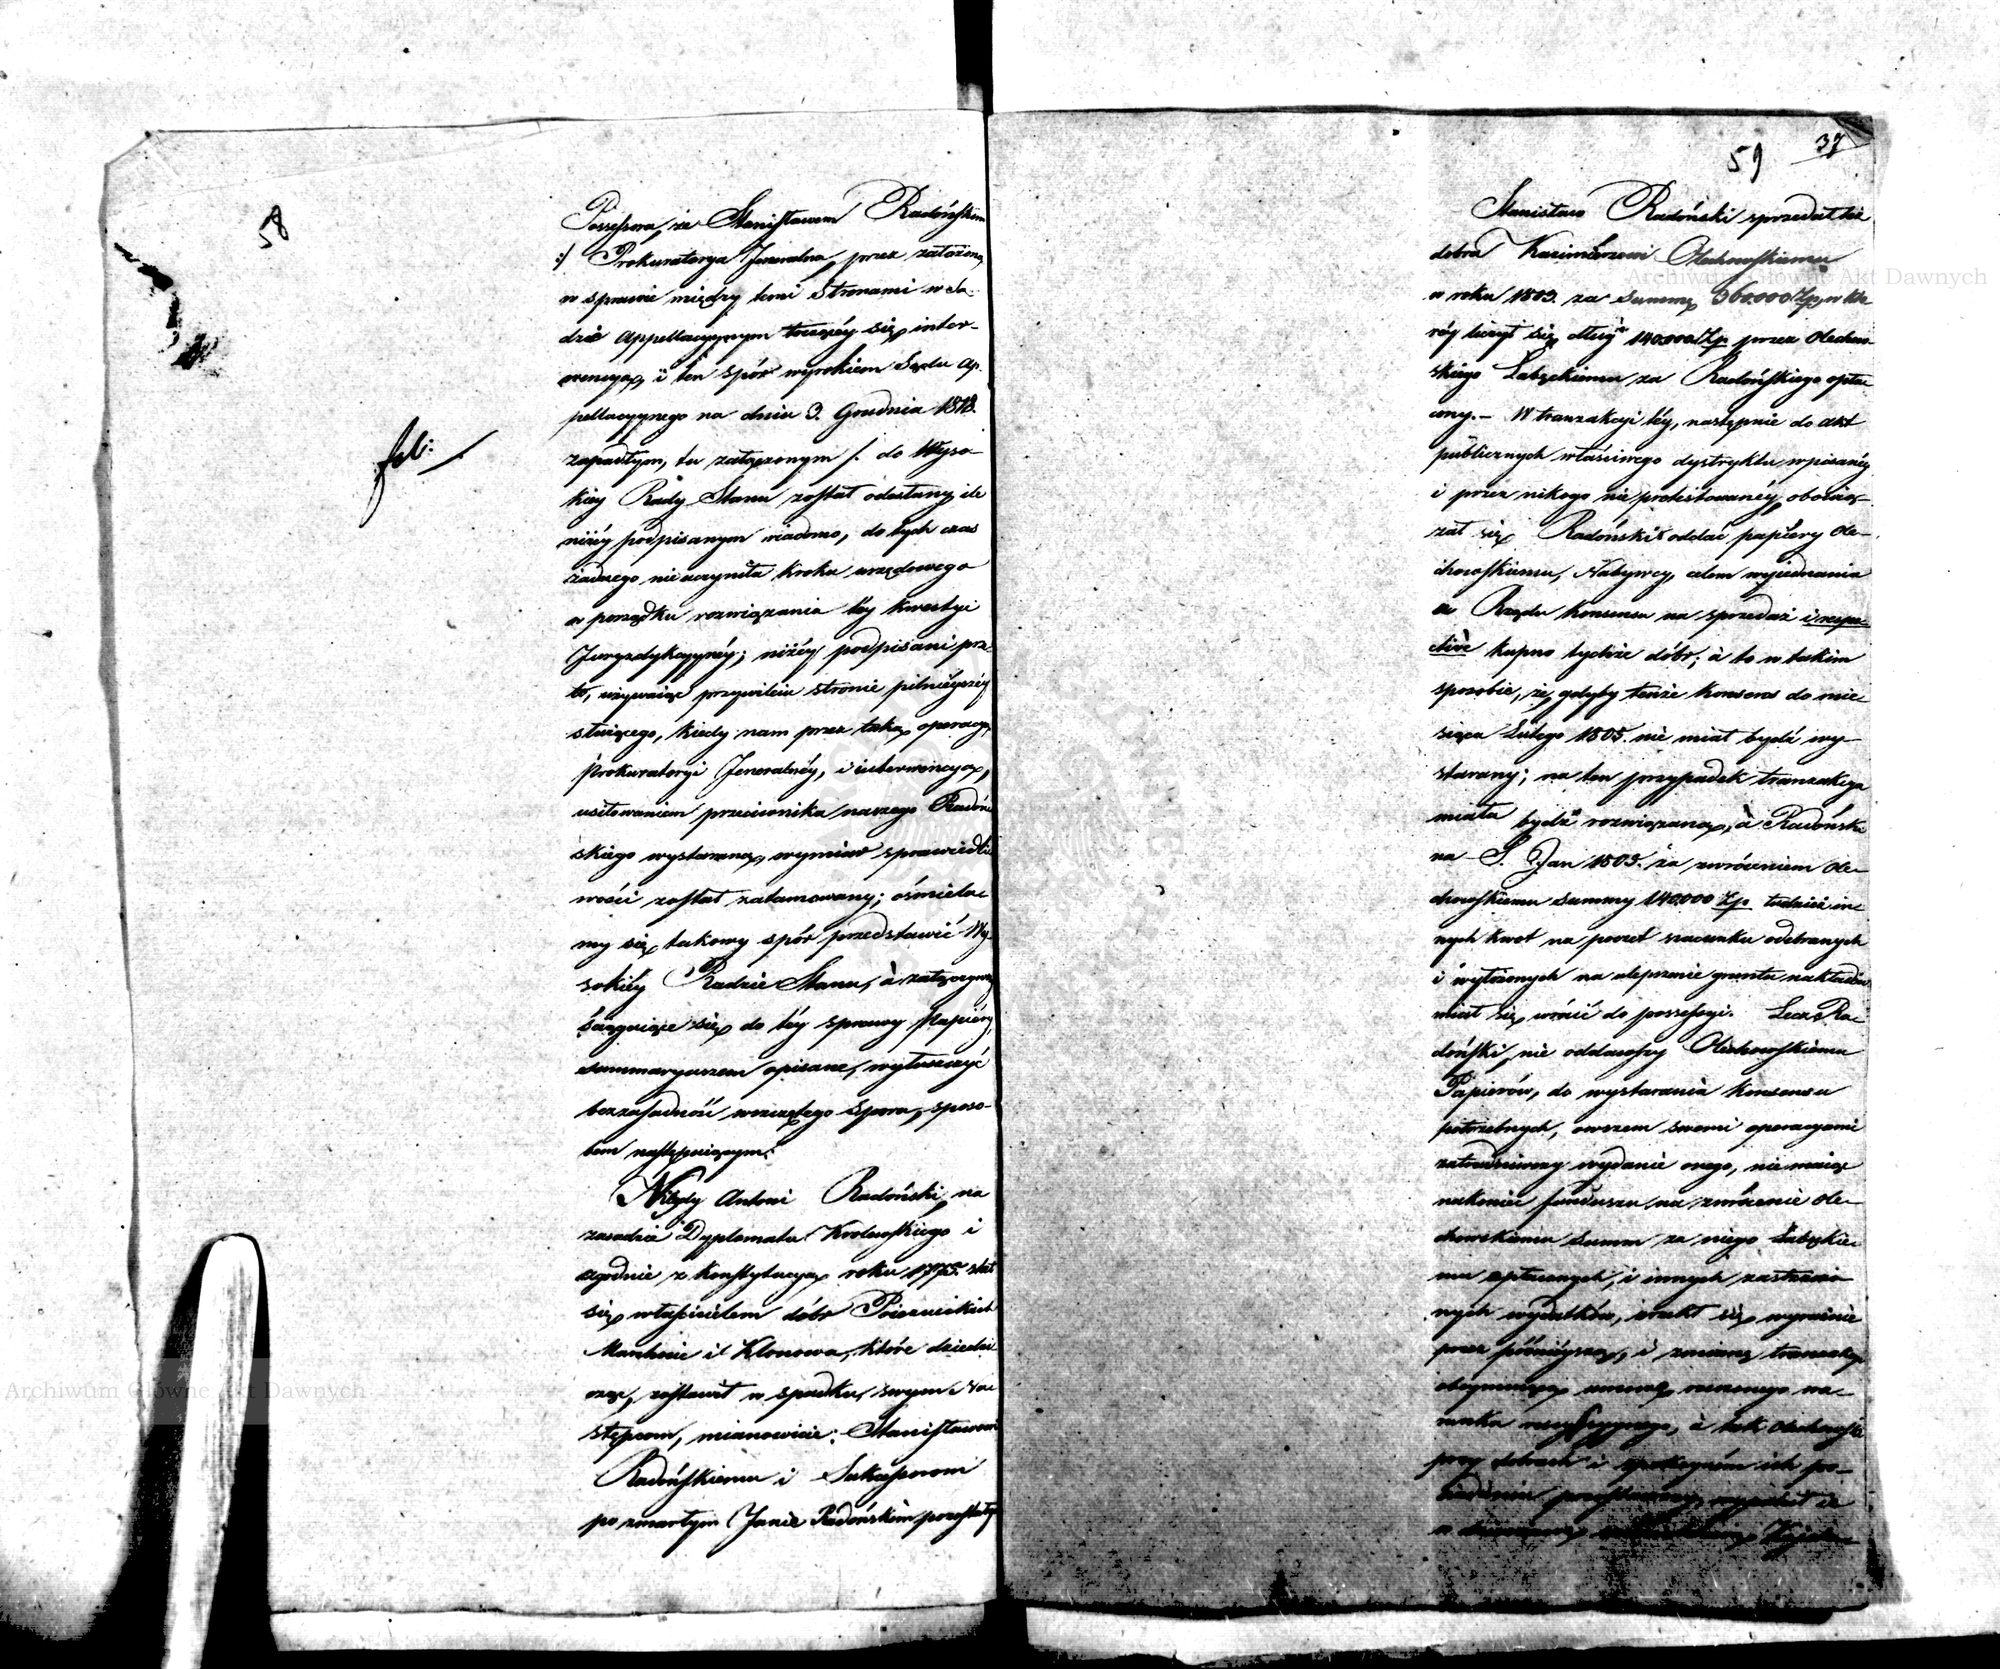 58
Possessora, ze Stanisławem Radońskim
:/ Prokuratorya Jeneralna, przez założoną
w sprawie między temi Stronami w Są-
dzie Appellacyjnym toczącéy się inter-
wencyą, i ten spór wyrokiem Sądu Ap-
pellacyynego na dniu 9. Grudnia 1818.
zapadłym, tu załączonym /. do Wyso-
kiey Rady Stanu został odesłany, ile
niżéy podpisanym wiadomo, do tych czas
żadnego nie uczyniła kroku urzędowego
w porządku rozwiązania téy kwestyi
Juryzdykcyynéy; niżéy podpisani prze-
to, używaiąc przywileiu stronie pilnieyszéy
służącego, kiedy nam przez taką operacyą
Prokuratoryi Jeneralnéy, i interwencyą,
usiłowaniem przeciwnika naszego Radoń-
skiego wystaraną, wymiar sprawiedli-
wości został zatamowany; ośmiela-
my się takowy spór przedstawić Wy-
sokiéy Radzie Stanu, à załączywszy
ściągaiące się do téy sprawy papiéry,
summaryuszem opisane, wyłuszczyć
bezzasadność wszczętego Sporu, sposo-
bem następuiącym:
Niegdy Antoni Radoński, na
zasadzie Dyplomatu Krolewskiego i
zgodnie z Konstytucyą roku 1775. stał
się właścicielem dóbr
i Klonowa, które dziedzi-
cząc, zostawił w spadku, swym Na-
stępcom, mianowicie: Stanisławowi
Radońskiemu i Sukcessorom
po zmarłym Janie Radońskim pozostałym
fol:
59
37
Stanisław Radoński sprzedał też
dobra Kazimierzowi Olechowskiemu
w roku 1803. za Summę 360.000 Zp, w któ-
réy liczył się dług 140.000 Zp przez Olechow-
skiego Łabęckiemu za Radońskiego opła-
cony.- W tranzakcyi téy, następnie do akt
publicznych właściwego dystryktu wpisanéy
i przez nikogo nie protestowanéy, obowią-
zał się Radoński oddać papiéry Ole-
chowskiemu, Nabywcy, celem wyjednania
u Rządu konsensu na sprzedaż i respe-
ctive kupno tychże dóbr; à to w takim
sposobie, że, gdyby tenże konsens do mie-
siąca Lutego 1805. nie miał bydź wy-
starany; na ten przypadek tranzakcya
miała bydź rozwiązaną, à Radoński
na S. Jan 1805. za zwróceniem Ole-
chowskiemu Summy 140.000 Zp tudzież in-
nych kwot na poczet szacunku odebranych
i wyłożonych na ulepszenie gruntu nakładów
miał się wrócić do possessyi. Lecz Ra-
doński, nie oddawszy Olechowskiemu
Papierów, do wystarania konsensu
potrzebnych, owszem swemi operacyami
zatrudniwszy wydanie onego, nie maiąc
nakoniec funduszu na zwrócenie Ole-
chowskiemu Summ za niego Łabęckie-
mu opłaconych, i innych
nych wydatków, zrzekł się wyraźnie
przez późnieyszą, i zmianę tranzakcyi
obeymuiącą umowę rzeczonego wa-
runku à tak Olechowski
przy dobrach i spokoyném ich po-